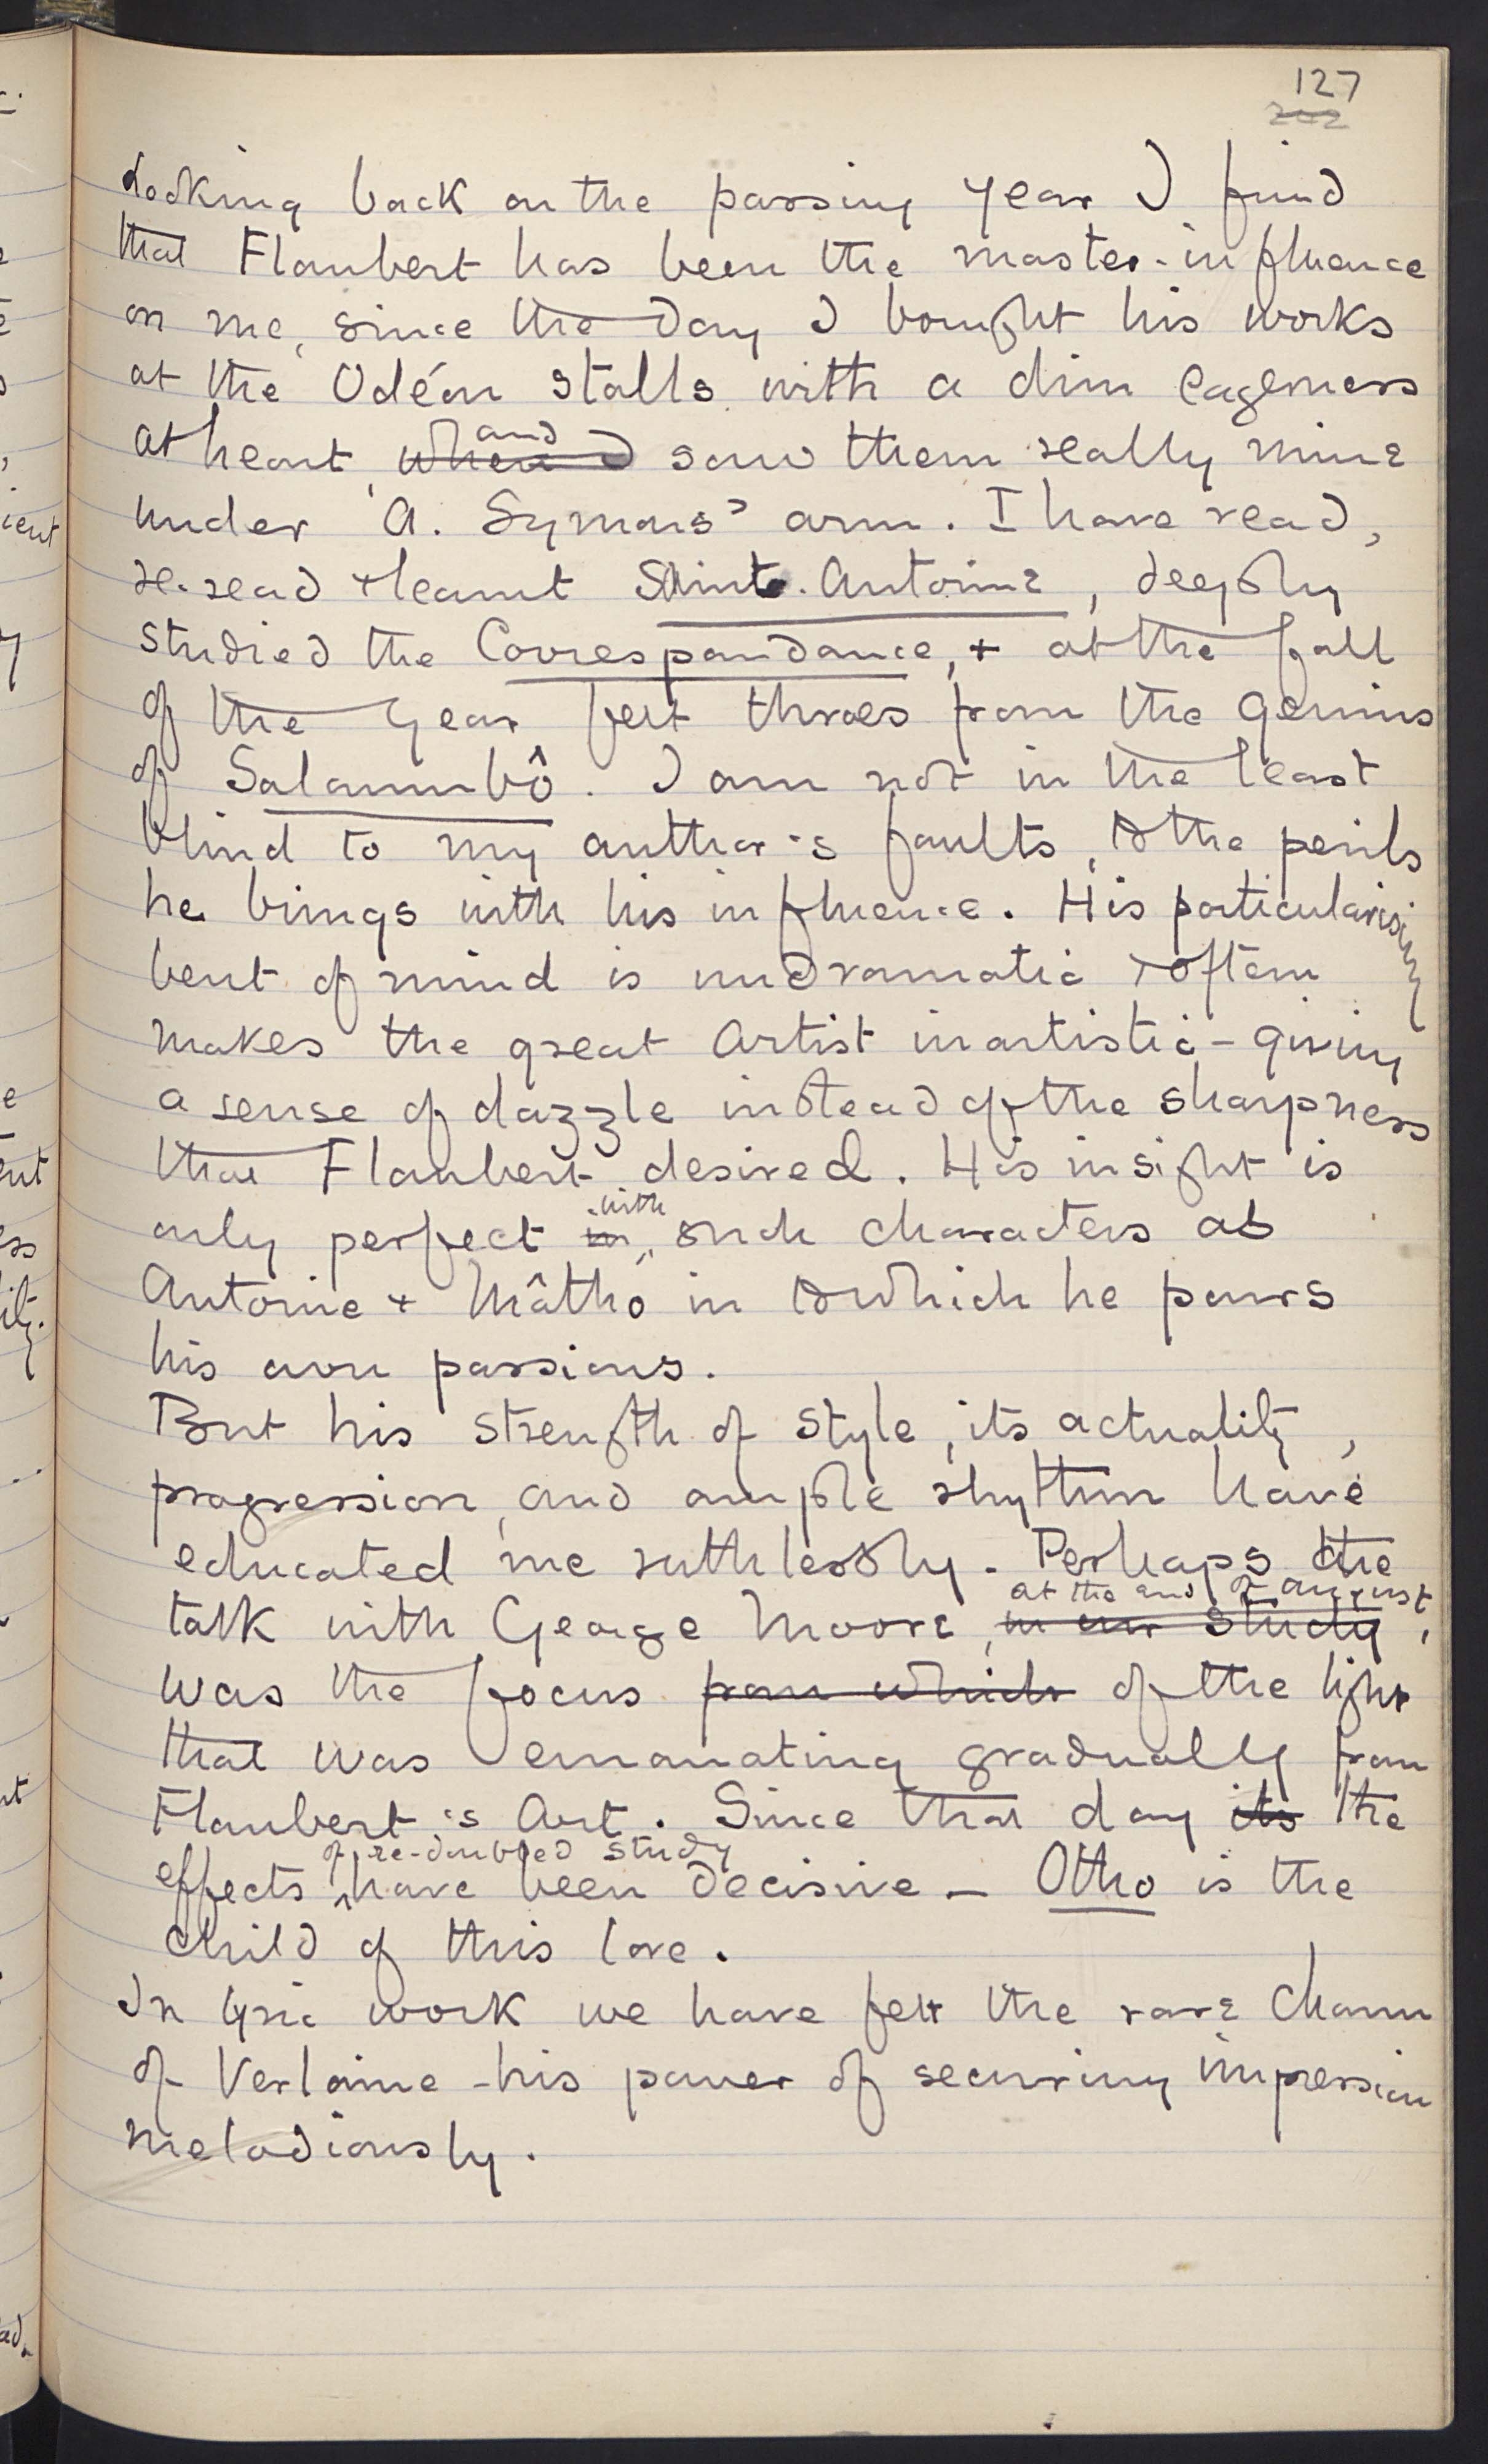 127
Looking back on the passing year I find
that Flaubert has been the master-influence
on me, since the day I bought his works
at the Odéon stalls with a dim eagerness
and
at heart, when I saw them really mine
under A. Symons' arm. I have read,
re-read + learnt Saint. Antoine, deeply
studied the Correspondance, + at the fall
of the Year felt throes from the genius
of Salammbô. I am not in the least
blind to my author's faults, & the perils
he brings with his influence. His particularising
bent of mind is undramatic + often
makes the great Artist inartistic - giving
a sense of dazzle instead of the sharpness
that Flaubert desired. His insight is
with
only perfect in such characters as
Antoine + Mâtho in to which he pours
his own passions.
But his strength of style, its actuality,
progression, and ample rhythm have
educated me ruthlessly. Perhaps the
at the end of August,
talk with George Moore, in our study,
was the focus from which of the light
that was emanating gradually from
Flaubert's Art. Since that day its the
of re-doubled study
effects have been decisive - Otho is the
child of this love.
In lyric work we have felt the rare charm
of Verlaine - his power of securing impression
melodiously.